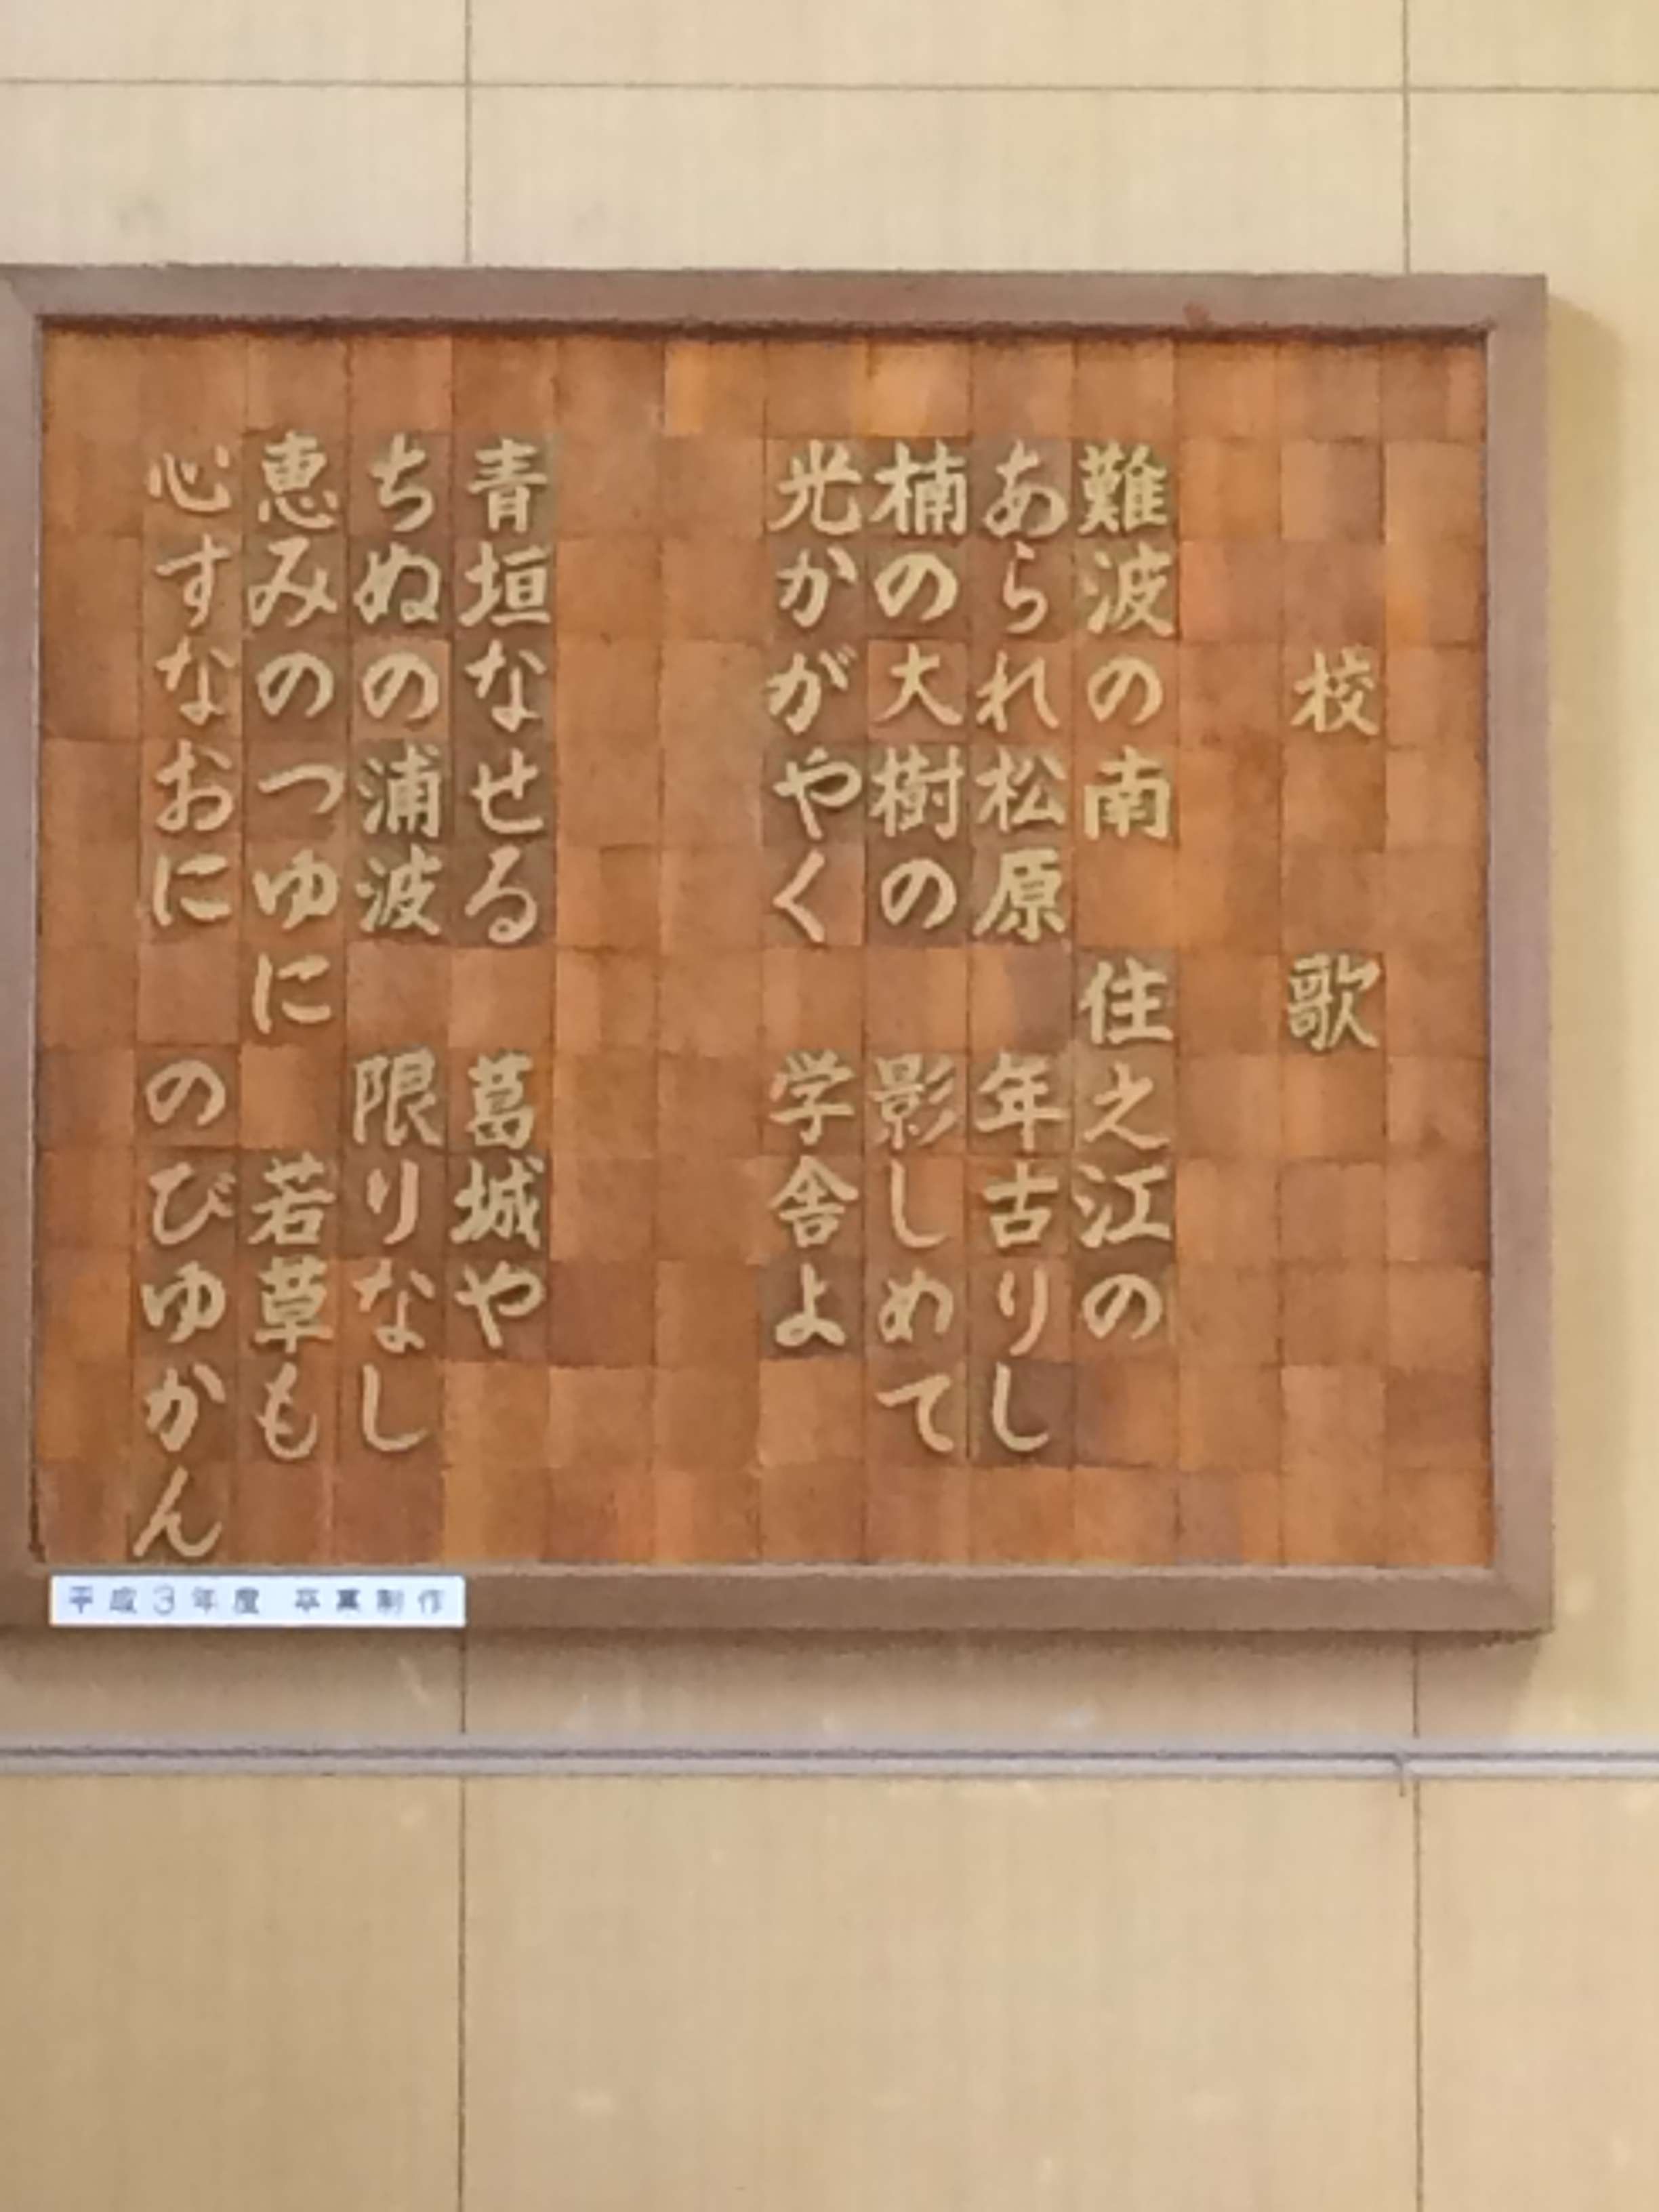 校歌
難波の南　住之江の
あられ松原　年古りし
楠の大樹の　影しめて
光かがやく　学舎よ
青垣なせる　葛城や
ちぬの浦波　限りなし
恵みのつゆに　若草も
心すなおに　のびゆかん
平成3年度 卒業制作